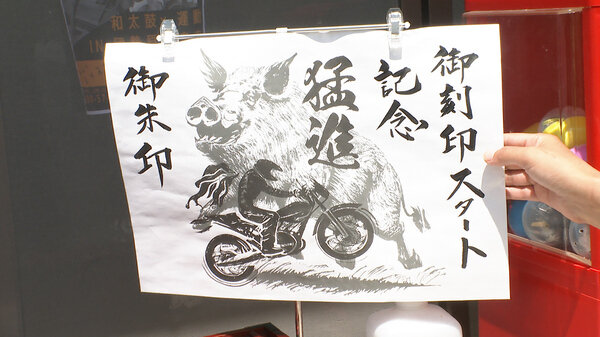 御刻印スタート
記念
猛進
御朱印
和太鼓